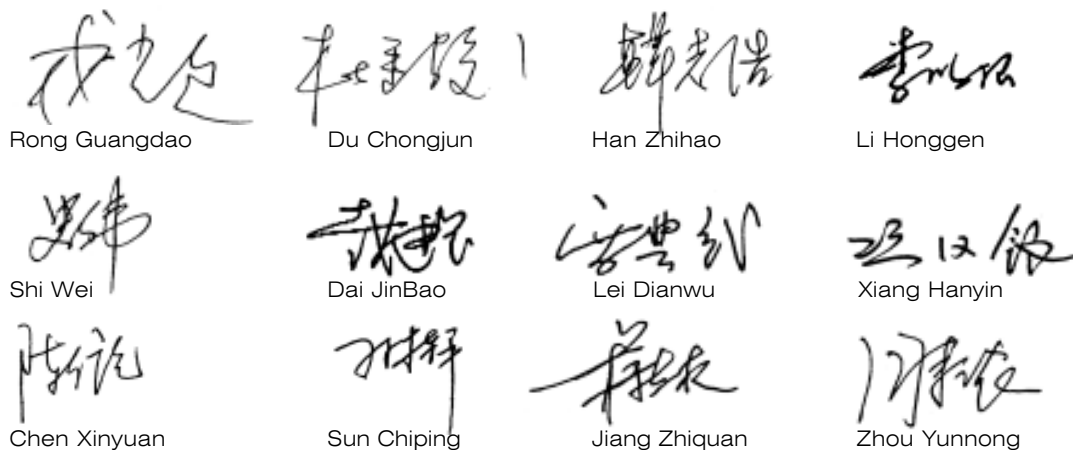 戎光道 杜重骏 韩志浩
Rong Guangdao Du Chongjun Han Zhihao Li Honggen
史伟 雷典武 项汉银
Shi Wei Dai JinBao Lei Dianwu Xiang Hanyin
孙持平 蒋志权 周耘农
Chen Xinyuan Sun Chiping Jiang Zhiquan Zhou Yunnong